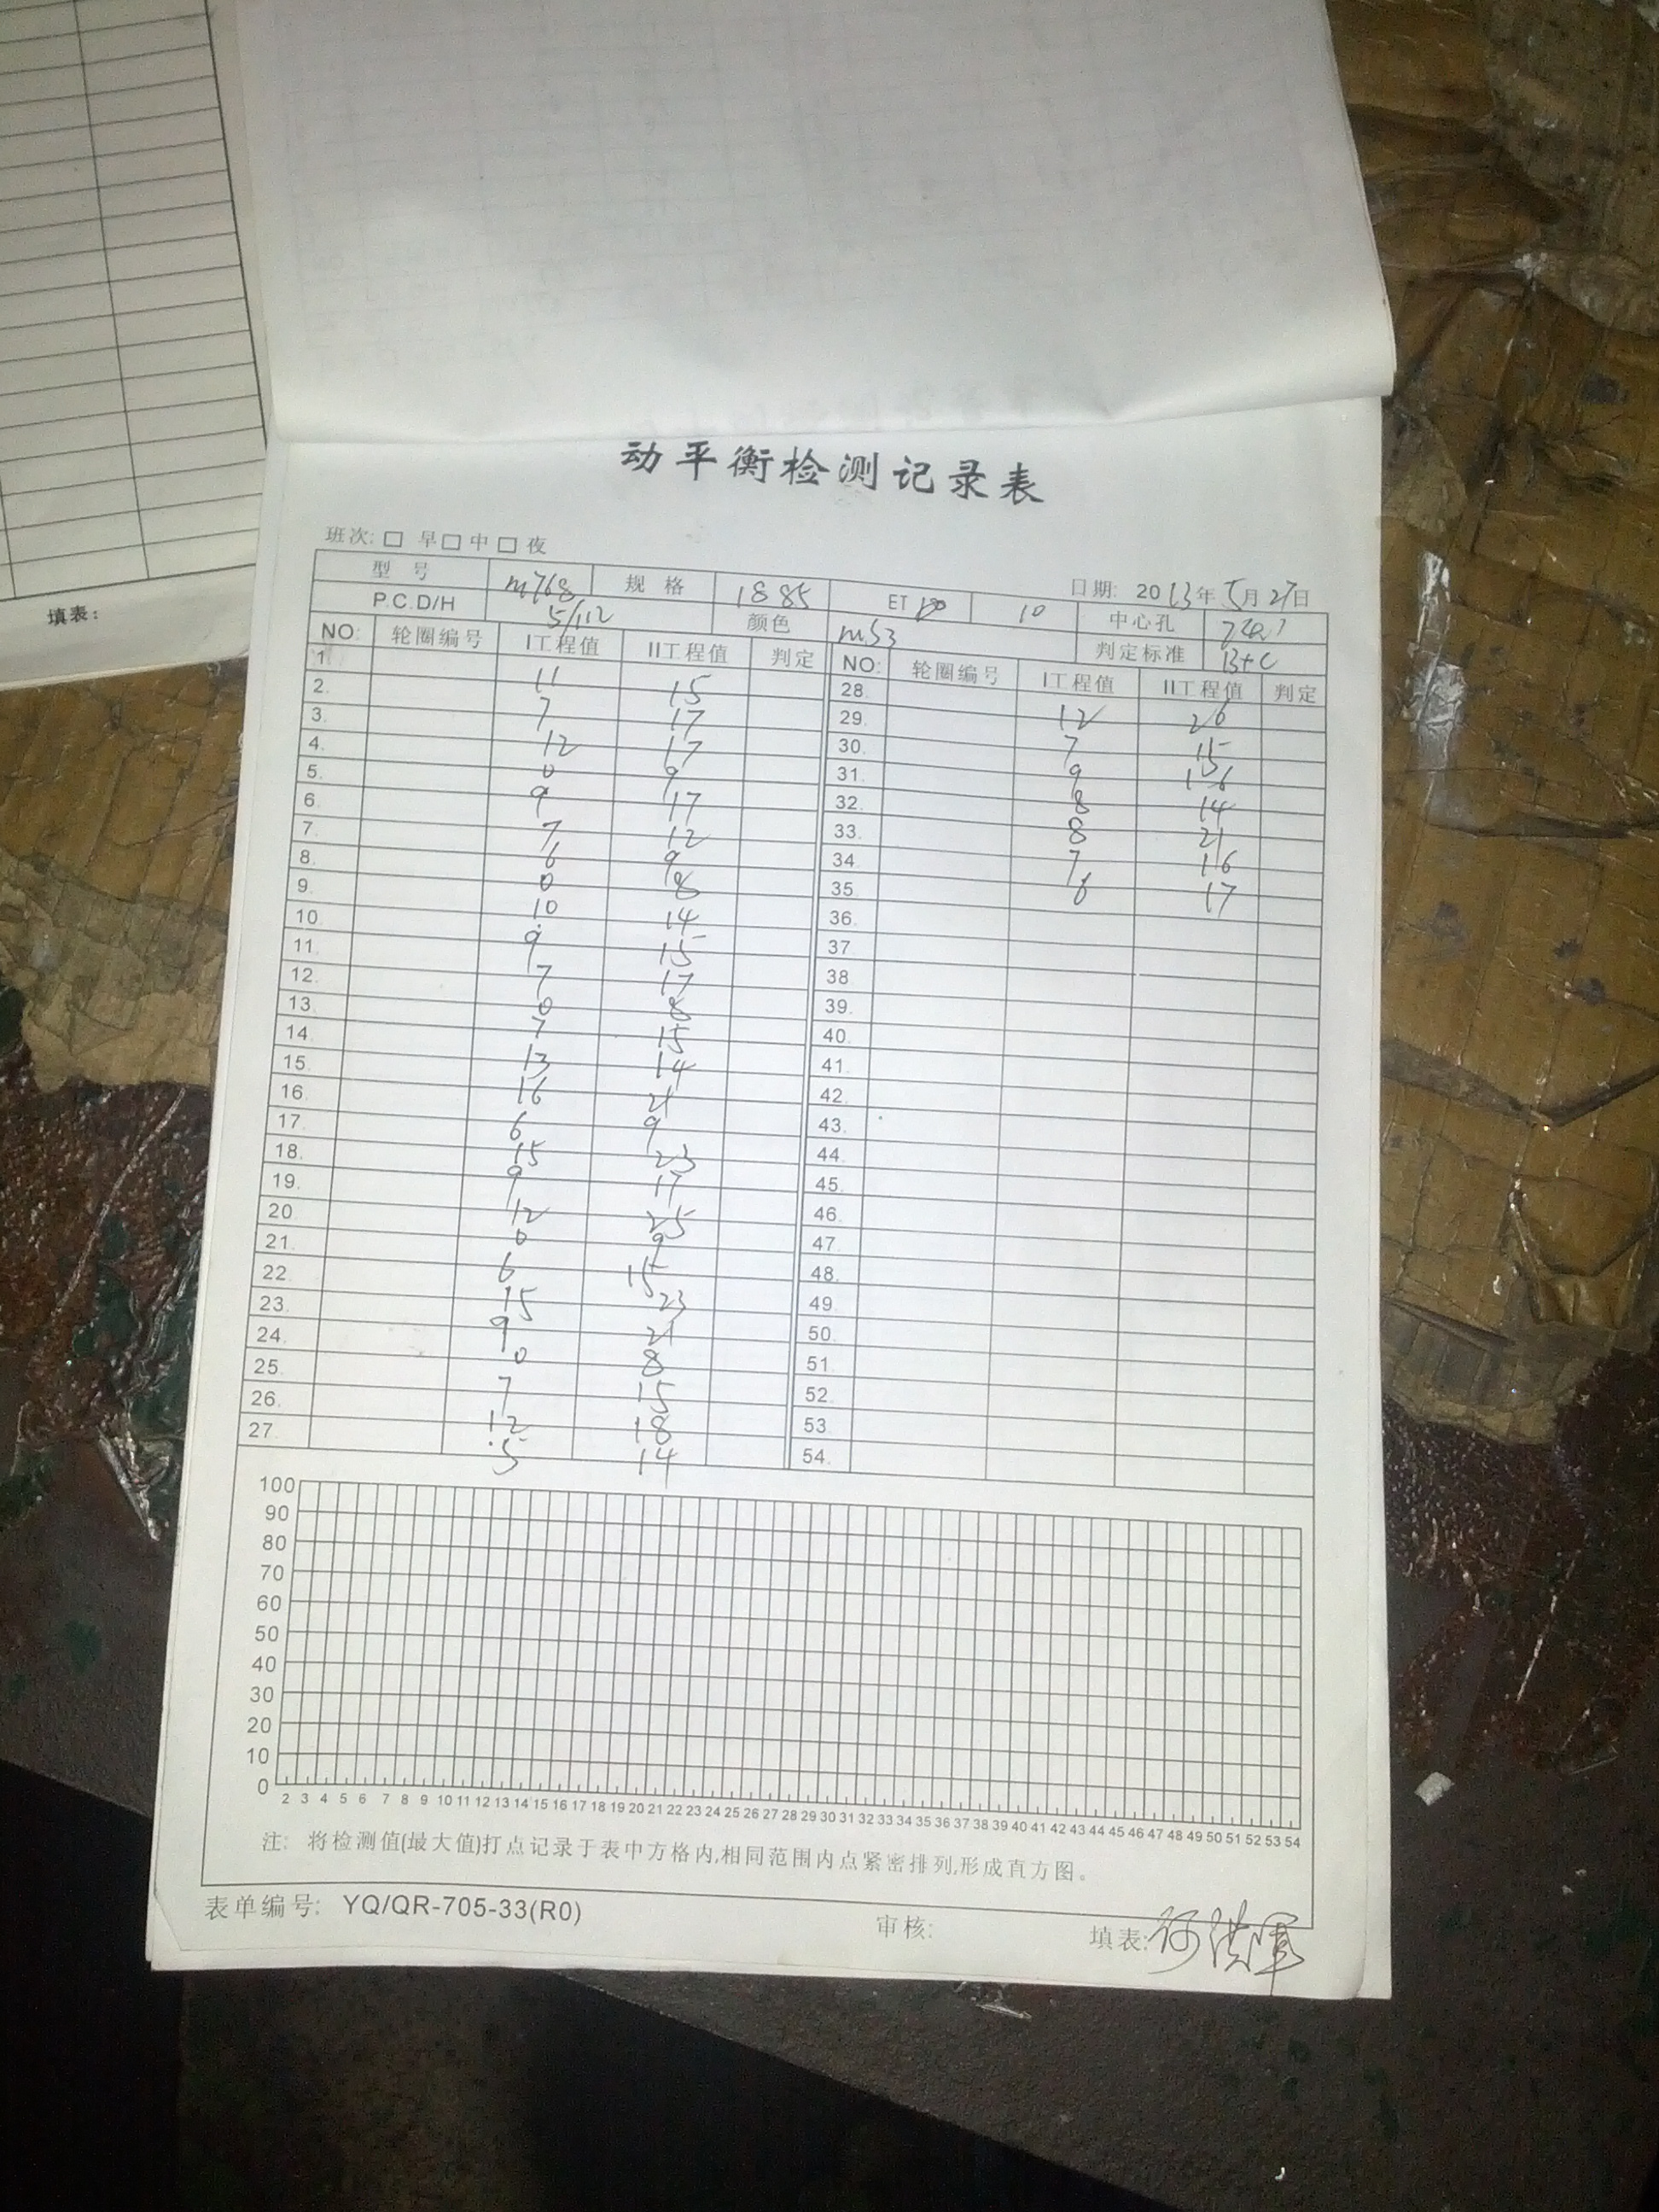 动平衡检测记录表
班次: □ 早 □ 中 □ 夜 日期: 2013年5月27日
型号 m768 规格 1885 ET 10 中心孔
P.C.D/H 5/112 颜色 ms3 判定标准 B+C
NO: 轮圈编号 I工程值 II工程值 判定 NO: 轮圈编号 I工程值 II工程值 判定
1. 11 15 28. 12 26
2. 7 17 29. 7 15
3. 12 17 30. 9 16
4. 0 9 31. 8 14
5. 9 17 32. 8 21
6. 7 12 33. 7 16
7. 6 9 34. 8 17
8. 0 8 35.
9. 10 14 36.
10. 9 15 37.
11. 7 17 38
12. 0 8 39.
13. 7 15 40.
14. 13 14 41.
15. 16 21 42.
16. 6 9 43.
17. 15 23 44.
18. 9 17 45.
19. 12 25 46.
20. 0 9 47.
21. 6 15 48.
22. 15 23 49.
23. 9 21 50.
24. 0 8 51.
25. 7 15 52.
26. 12 18 53.
27. 5 14 54.
100
90
80
70
60
50
40
30
20
10
0
2 3 4 5 6 7 8 9 10 11 12 13 14 15 16 17 18 19 20 21 22 23 24 25 26 27 28 29 30 31 32 33 34 35 36 37 38 39 40 41 42 43 44 45 46 47 48 49 50 51 52 53 54
注: 将检测值(最大值)打点记录于表中方格内,相同范围内点紧密排列,形成直方图。
表单编号: YQ/QR-705-33(R0) 审核: 填表: 何洪军
填表: